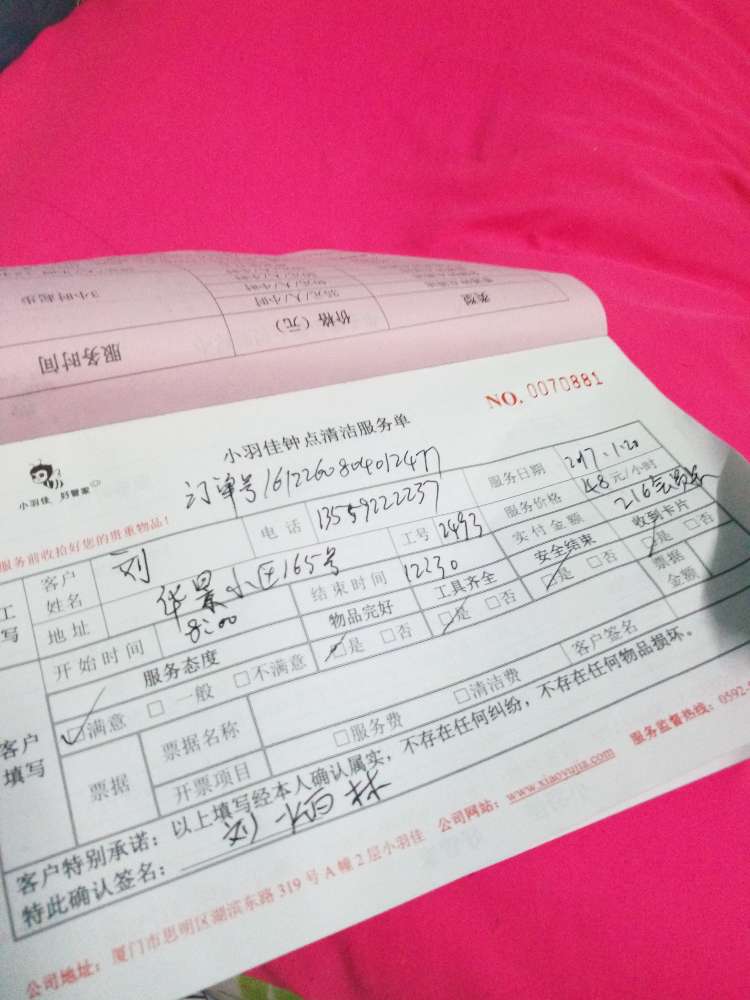 类型
价格（元）
服务时间
35元/人/小时
3小时起步
NO. 0070881
小羽佳 好管家
小羽佳钟点清洁服务单
订单号1612260804012477
服务前收拾好您的贵重物品！
客户姓名 刘 电话 13559222237 服务日期 2017.1.20
地址 华景小区165号 工号 2493 服务价格 48元/小时
开始时间 8:00 结束时间 12:30 实付金额 216元
服务态度 物品完好 工具齐全 安全结束 收到卡片
☑满意 □一般 □不满意 ☑是 □否 ☑是 □否 ☑是 □否 ☑是 □否
客户填写
票据 票据名称 客户签名 票据金额
开票项目 □服务费 □清洁费
客户特别承诺：以上填写经本人确认属实，不存在任何纠纷，不存在任何物品损坏。
特此确认签名：刘
公司地址：厦门市思明区湖滨东路319号A幢2层小羽佳 公司网站：www.xiaoyujia.com 服务监督热线：0592-